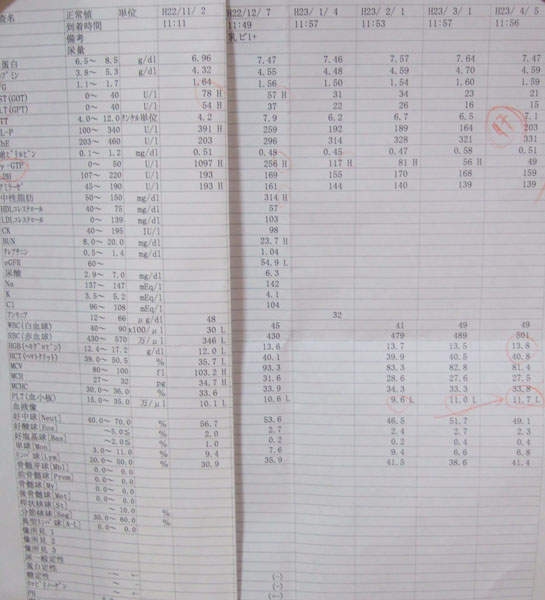 査名 正常値 単位 H22/11/ 2 H22/12/ 7 H23/ 1/ 4 H23/ 2/ 1 H23/ 3/ 1 H23/ 4/ 5
到着時間 11:11 11:49 11:57 11:53 11:57 11:56
備考 乳ビ1+
尿量
蛋白 6.5～ 8.5 g/dl 6.96 7.47 7.46 7.57 7.64 7.47
3.8～ 5.3 g/dl 4.32 4.55 4.48 4.59 4.70 4.59
1.1～ 1.7 1.64 1.56 1.50 1.54 1.60 1.59
ST(GOT) 0～ 40 U/l 78 H 57 H 31 34 23 21
LT(GPT) 0～ 40 U/l 54 H 37 22 26 16 15
TT 4.0～ 12.0 クンケル単位 4.2 7.9 6.2 6.7 6.5 7.1
L-P 100～ 340 U/l 391 H 259 192 189 164 203
ChE 203～ 460 U/l 203 296 314 328 321 331
ビリルビン 0.1～ 1.2 mg/dl 0.51 0.48 0.45 0.47 0.58 0.51
γ-GTP 0～ 50 U/l 1097 H 256 H 117 H 81 H 56 H 49
LDH 107～ 220 U/l 193 169 155 170 168 159
アミラーゼ 45～ 190 U/l 193 H 161 144 140 139 139
中性脂肪 50～ 150 mg/dl 314 H
HDLコレステロール 40～ 75 mg/dl 57
LDLコレステロール 70～ 139 mg/dl 103
CK 40～ 195 IU/l 98
BUN 8.0～ 20.0 mg/dl 23.7 H
クレアチニン 0.5～ 1.4 mg/dl 1.04
eGFR 60～ 54.9 L
尿酸 2.9～ 7.0 mg/dl 6.3
Na 137～ 147 mEq/l 142
K 3.5～ 5.2 mEq/l 4.1
Cl 96～ 108 mEq/l 104
アンモニア 12～ 66 μg/dl 48 32
WBC(白血球) 40～ 90 x100/μl 30 L 45 41 49 49
RBC(赤血球) 430～ 570 万/μl 346 L 430 479 489 501
HGB(ヘモグロビン) 12.4～ 17.2 g/dl 12.0 L 13.6 13.7 13.5 13.8
HCT(ヘマトクリット) 39.0～ 50.5 % 35.7 L 40.1 39.9 40.5 40.8
MCV 80～ 100 fl 103.2 H 93.3 83.3 82.8 81.4
MCH 27～ 32 pg 34.7 H 31.6 28.6 27.6 27.5
MCHC 30.0～ 36.0 % 33.6 33.9 34.3 33.3 33.8
PLT(血小板) 18.0～ 35.0 万/μl 10.1 L 10.6 L 9.6 L 11.0 L 11.7 L
血液像
好中球[Neut] 40.0～ 70.0 % 56.7 53.6 46.5 51.7 49.1
好酸球[Eos] ～5.0≦ % 2.0 2.7 2.4 2.7 2.3
好塩基球[Bas] ～2.0≦ % 1.0 0.2 0.2 0.4 0.4
単球[Mon] 3.0～ 11.0 % 9.4 7.6 9.4 6.6 6.8
リンパ球[Lym] 20.0～ 50.0 % 30.9 35.9 41.5 38.6 41.4
骨髄芽球[Mbl] 0.0～ 0.0 %
前骨髄球[Prom] 0.0～ 0.0 %
骨髄球[My] 0.0～ 0.0 %
後骨髄球[Met] 0.0～ 0.0 %
桿状核球[St] ～ 10.0 %
分節核球[Seg] 30.0～ 60.0 %
異型リンパ球[A-L] 0.0～ 0.0 %
像所見 1
像所見 2
像所見 3
尿一般定性
蛋白定性 (-)
糖定性 (-)
ウロビリノーゲン
PH